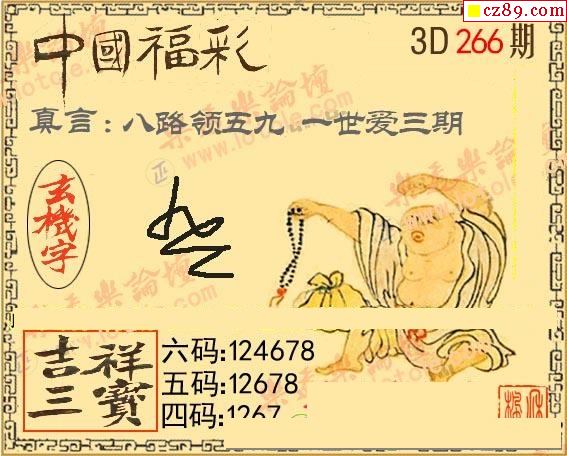 cz89.com
中國福彩
3D 266 期
真言：八路领五九 一世爱三期
玄機字
吉祥三寶
六码:124678
五码:12678
四码:1267